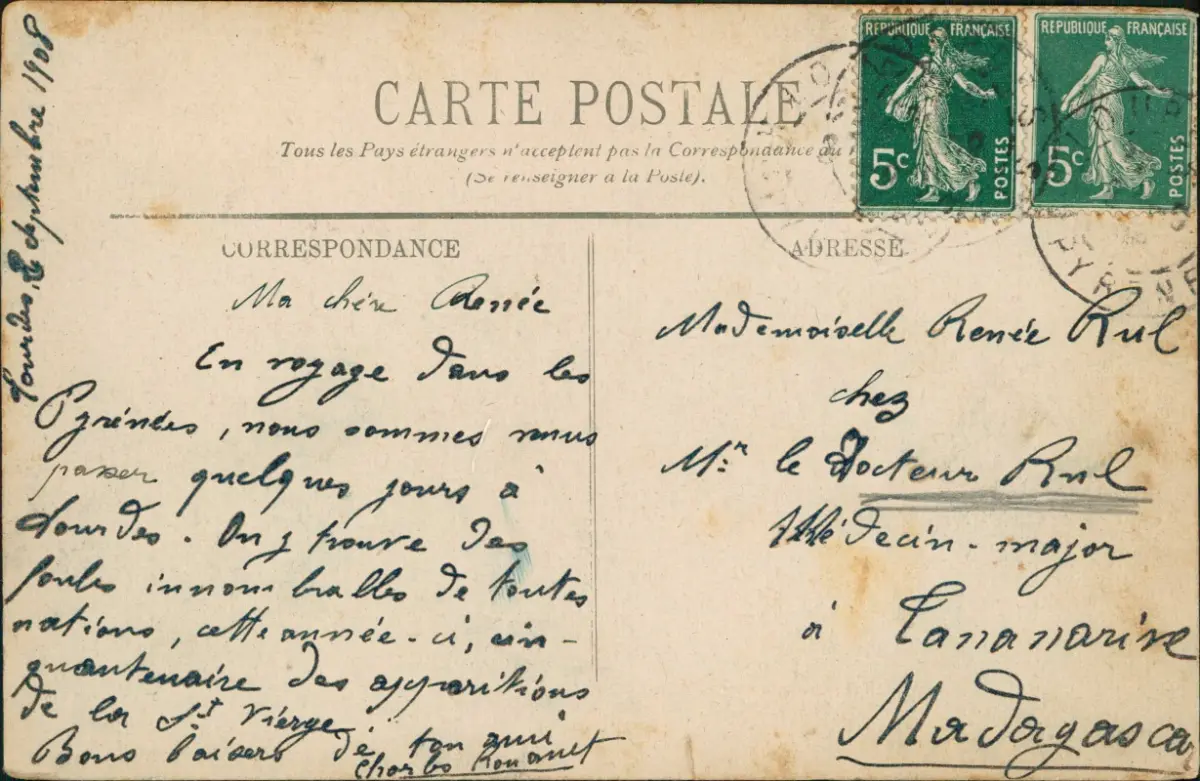 Lourdes, 2 Septembre 1908
CARTE POSTALE
Tous les Pays étrangers n'acceptent pas la Correspondance au
(Se renseigner a la Poste).
RÉPUBLIQUE FRANÇAISE
5c
POSTES
RÉPUBLIQUE FRANÇAISE
5c
POSTES
CORRESPONDANCE
Ma chére Renée
En voyage dans les
Pyrénées, nous sommes venus
passer quelques jours à
Lourdes. On y trouve des
foules innombrables de toutes
nations, cette année-ci, cin-
quantenaire des apparitions
de la St Vierge
Bons baisers de ton ami
Charles Rouanet
ADRESSE
Mademoiselle Renée Rul
chez
Mr. le Docteur Rul
Médecin-major
à Tananarive
Madagascar